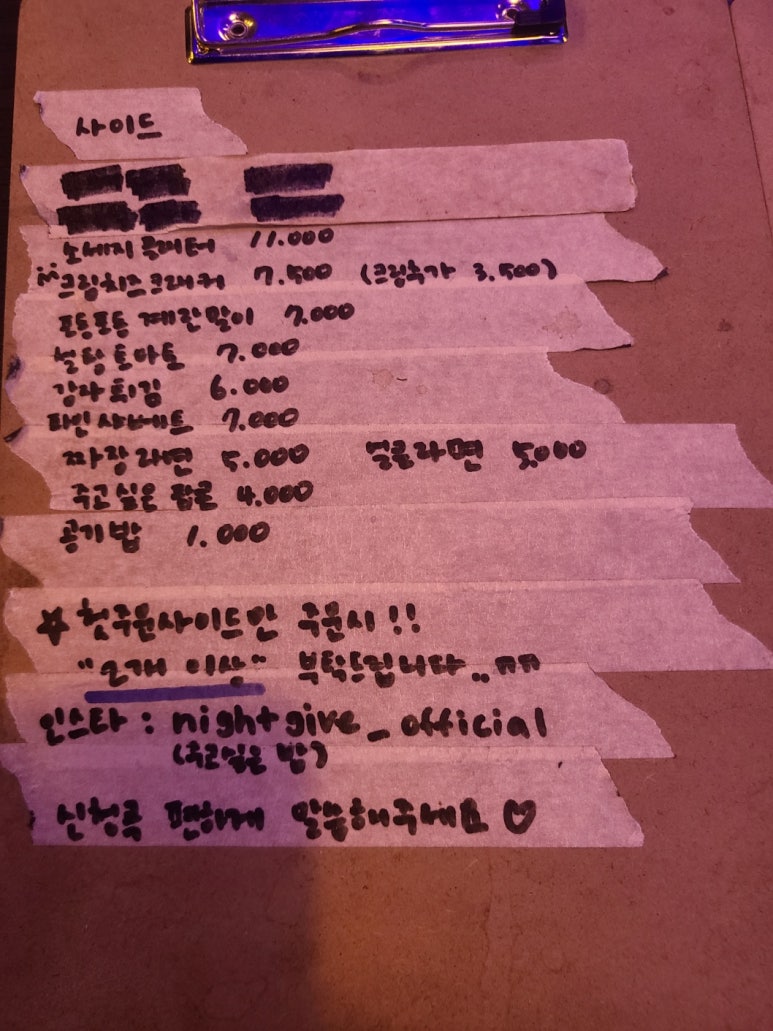 사이드
소세지 플래터 11.000
크림치즈크래커 7.500 (크림추가 3.500)
포동포동 계란말이 7.000
설탕토마토 7.000
감자튀김 6.000
파인샤베트 7.000
짜장라면 5.000 얼큰라면 5.000
주고싶은 팝콘 4.000
공기밥 1.000
☆ 첫주문사이드만 주문시!!
"2개 이상" 부탁드립니다..ㅠㅠ
인스타 : nightgive_official
(주고싶은 밤)
신청곡 편하게 말씀해주세요 ♡